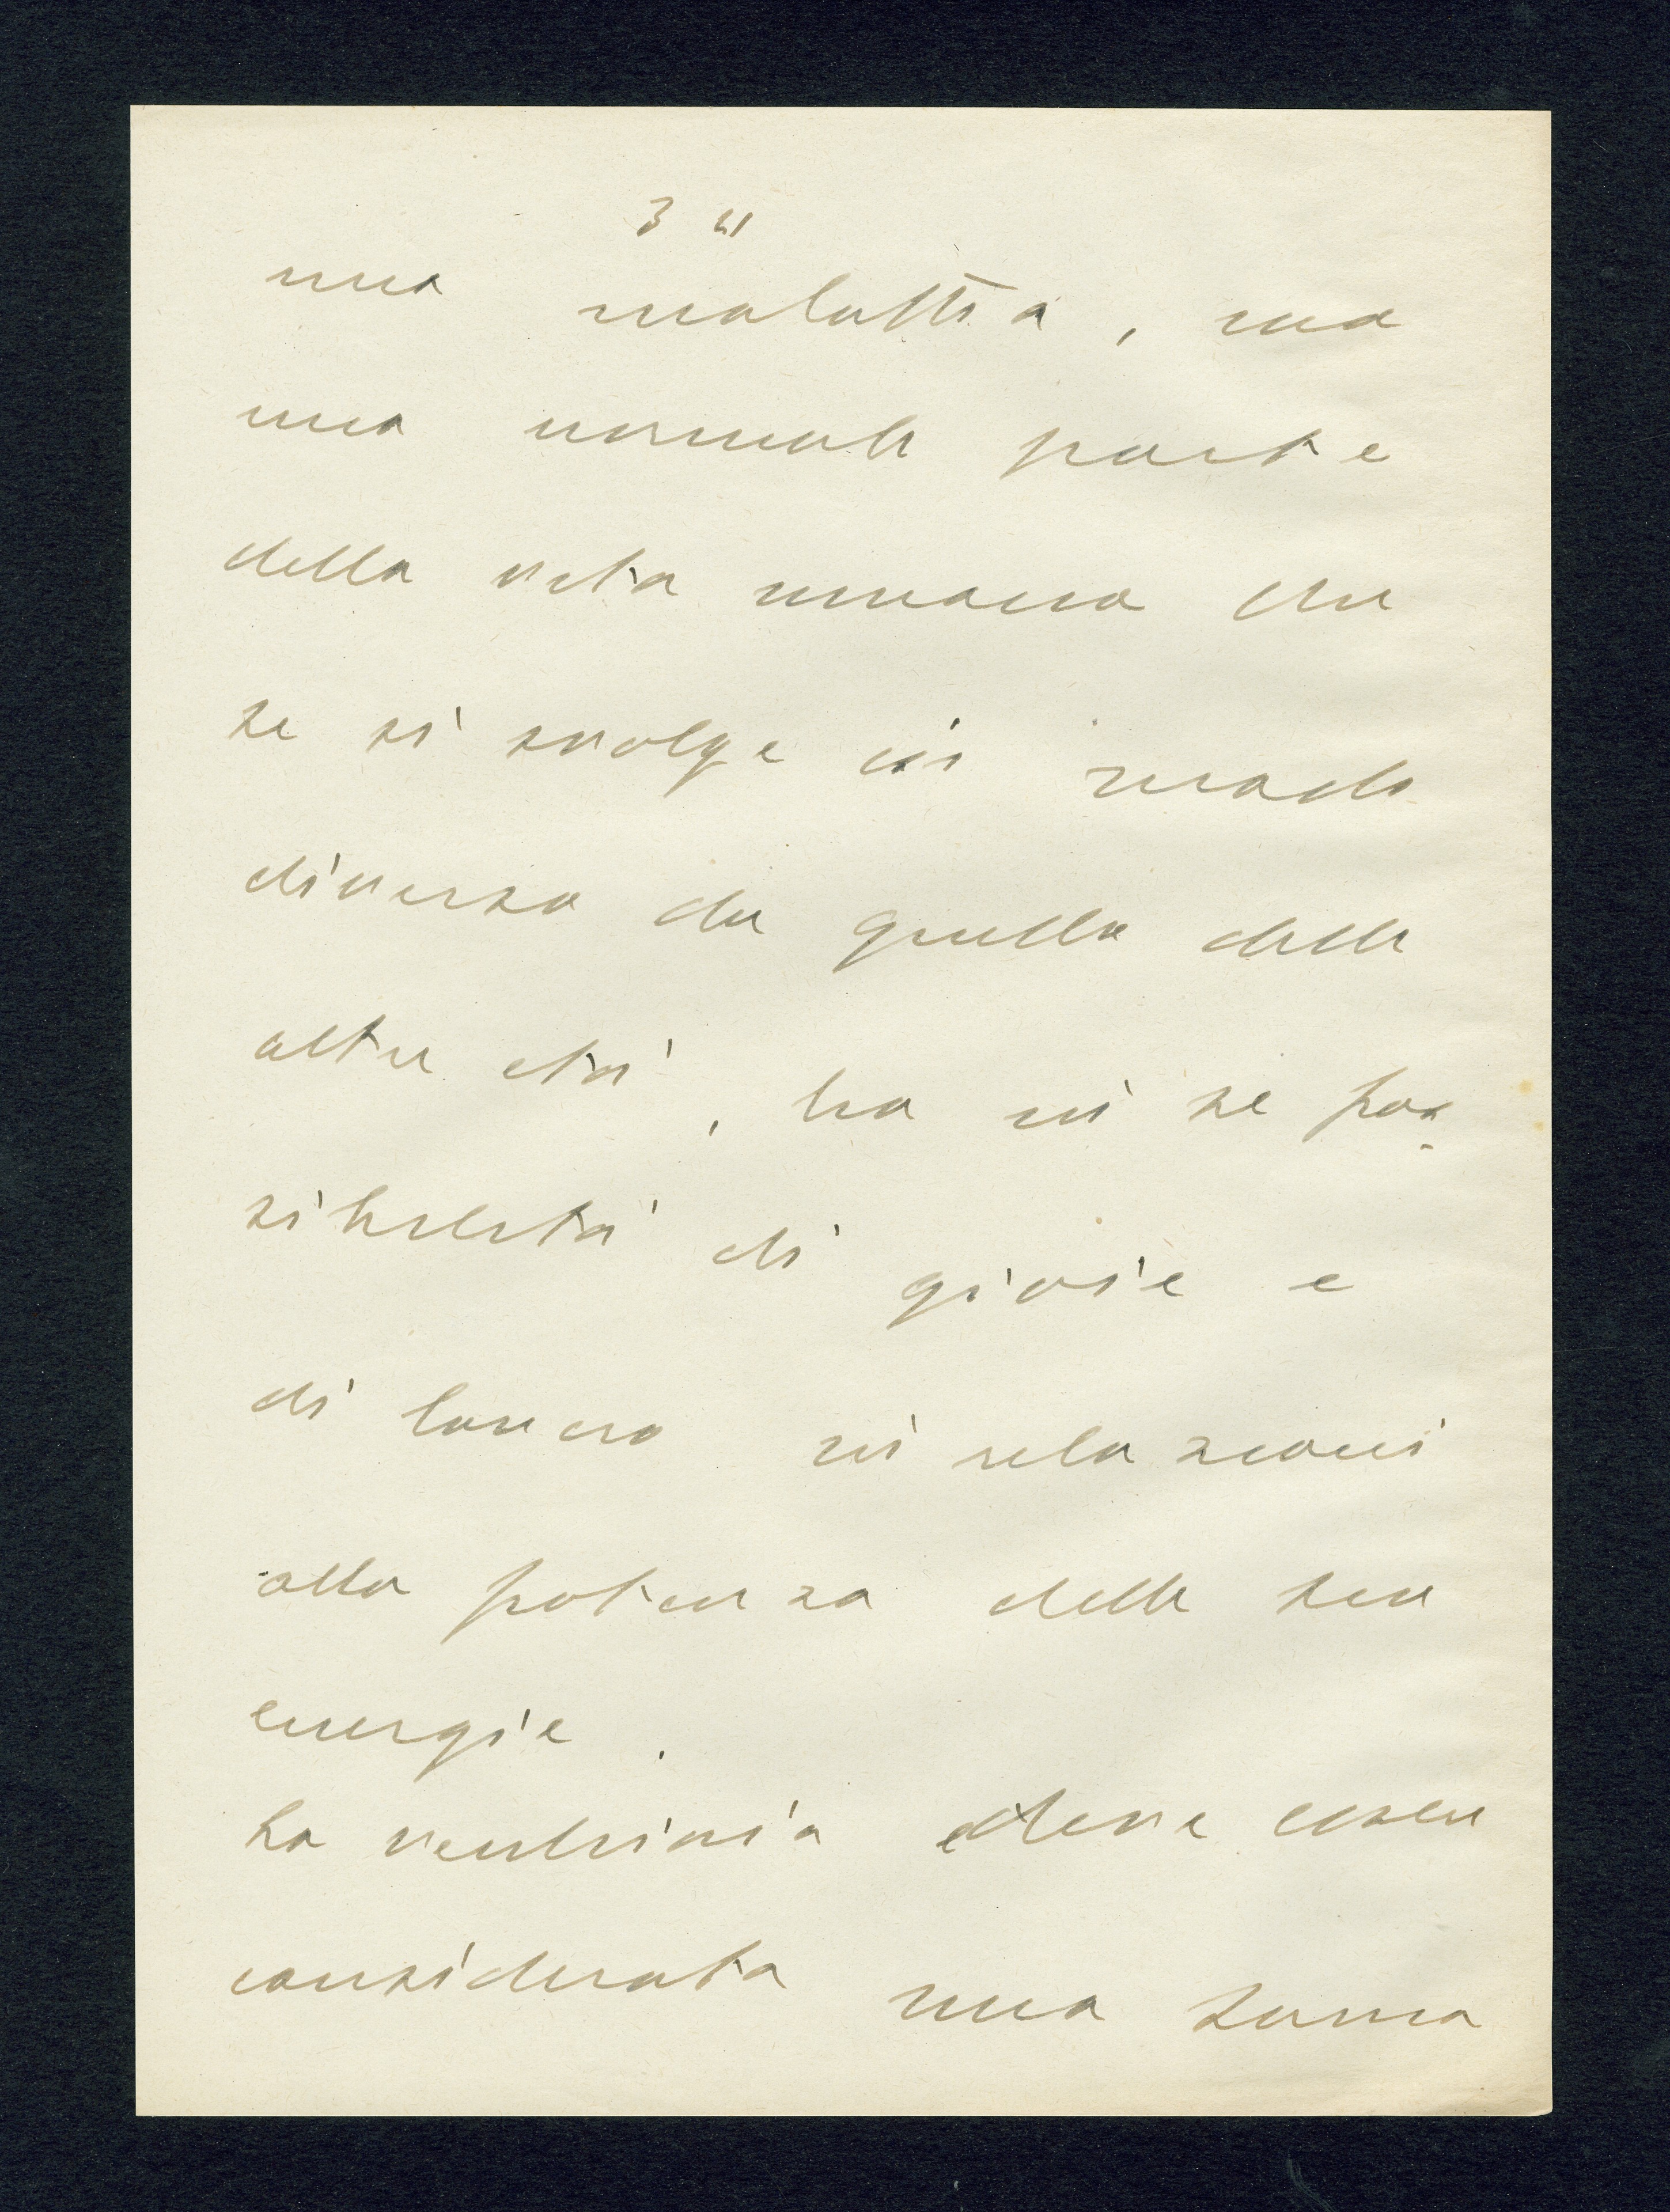 3 "
una malattia, ma
una normale parte
della vita umana che
se si svolge in modo
diverso da quello delle
altre età, ha in se pos-
sibilità di gioie e
di lavoro in relazioni
alla potenza delle sue
energie.
La vecchiaia deve essere
considerata una